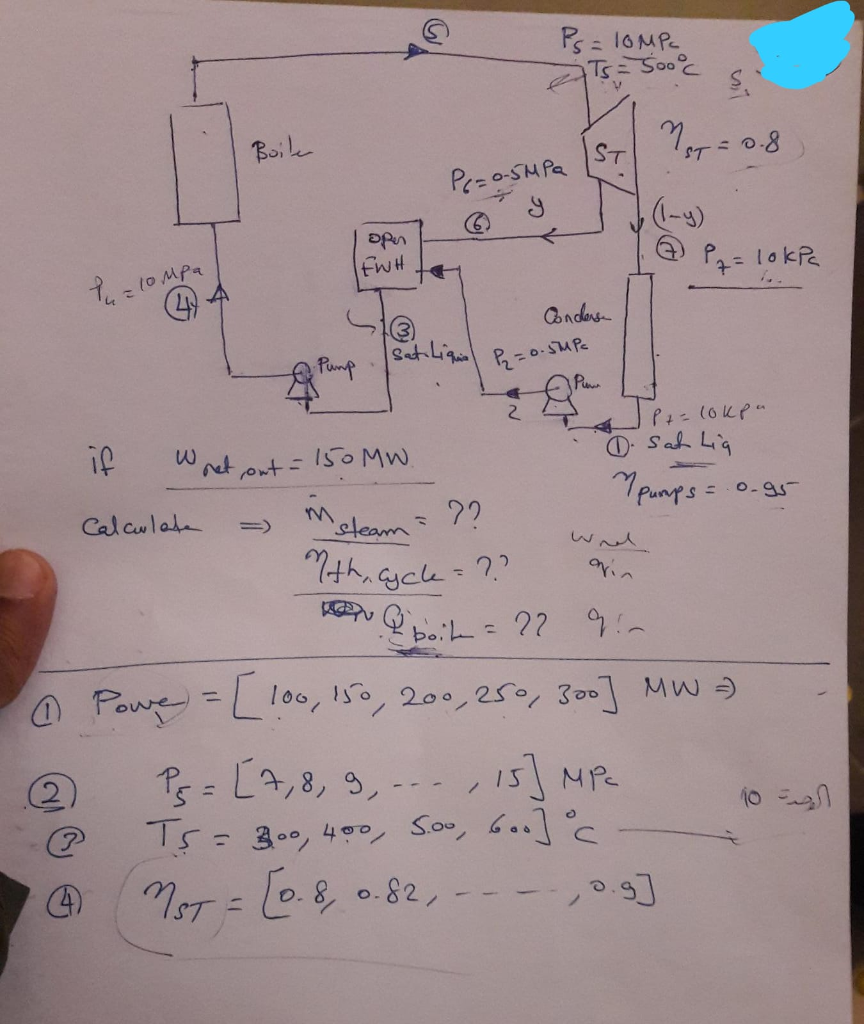 5
P5 = 10MPa
T5 = 500°C
S
Boiler
ST
ηST = 0.8
P6=0.5MPa
y
6
(1-y)
7
P7= 10kPa
open
FWH
P4=10MPa
4
3
Sat. Liquid
Condenser
P2=0.5MPa
Pump
Pum
2
P7= 10kPa
1. Sat Liq
ηpumps = 0.95
if Wnet,out = 150MW
Calculate ⇒ ṁsteam = ??
ηth,cycle = ??
Wnet
qin
Q̇boiler = ?? qin
① Power = [100, 150, 200, 250, 300] MW ⇒
② P5 = [7, 8, 9, ---, 15] MPa
③ T5 = 300, 400, 500, 600] °C
④ ηST = [0.8, 0.82, -----, 0.9]